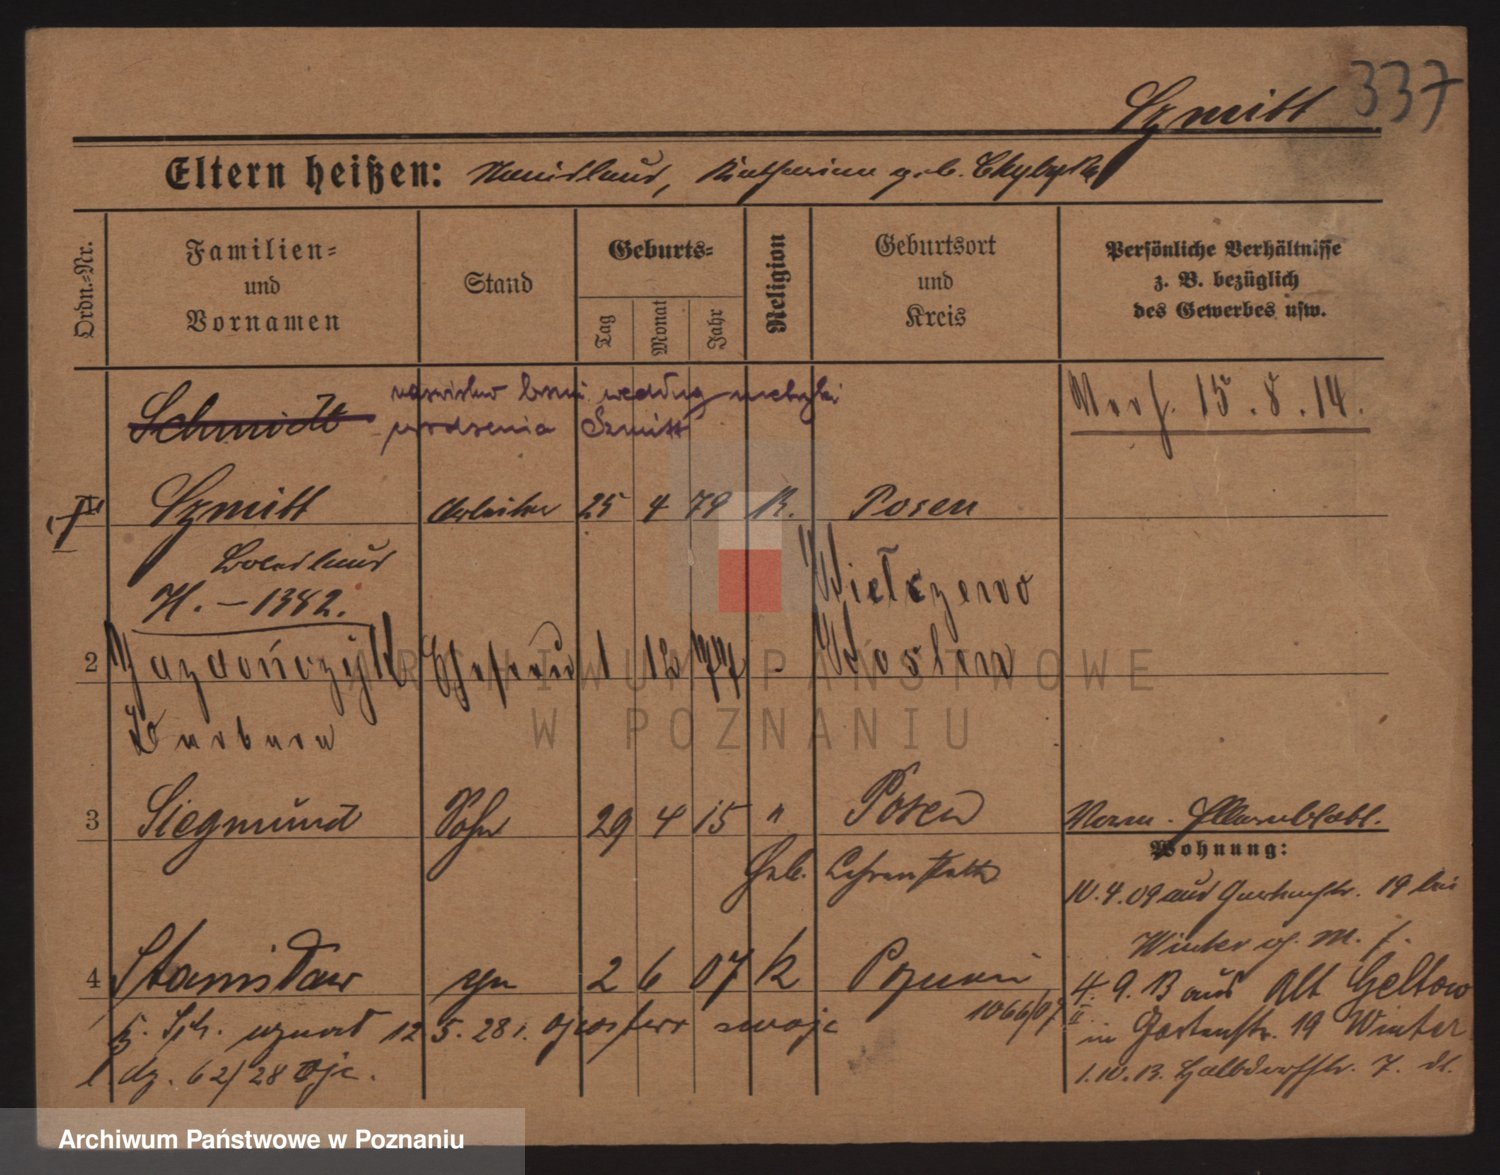 337
Szmitt
Eltern heißen: Stanislaus, Katharina geb. Chybycka
Ordn.-Nr.
Familien- und Vornamen
Stand
Geburts-
Tag
Monat
Jahr
Religion
Geburtsort und Kreis
Persönliche Verhältnisse z. B. bezüglich des Gewerbes usw.
Schmidt nazwisko brzmi według metryki
urodzenia Szmitt
15.8.14.
1 Szmitt Arbeiter 25 4 79 K. Posen
Boleslaus
H. - 1382.
Wielczewo
2 Kazdończyk Ehefrau 1 12 77 " Posten
Barbara
3 Siegmund Sohn 29 4 15 " Posen
Geb.
Wohnung:
10.4.09 aus Gartenstr. 19 bei
Winter
4 Stanisław syn 2 6 07 k Poznań
1066/07
4.9.13 aus Alt Geltow
in Gartenstr. 19 Winter
uznał 12 5. 28 r. ojcostwo swoje
l dz. 62/28 ojc.
1.10.13. Halbdorfstr. 7.
ARCHIWUM PAŃSTWOWE
W POZNANIU
Archiwum Państwowe w Poznaniu